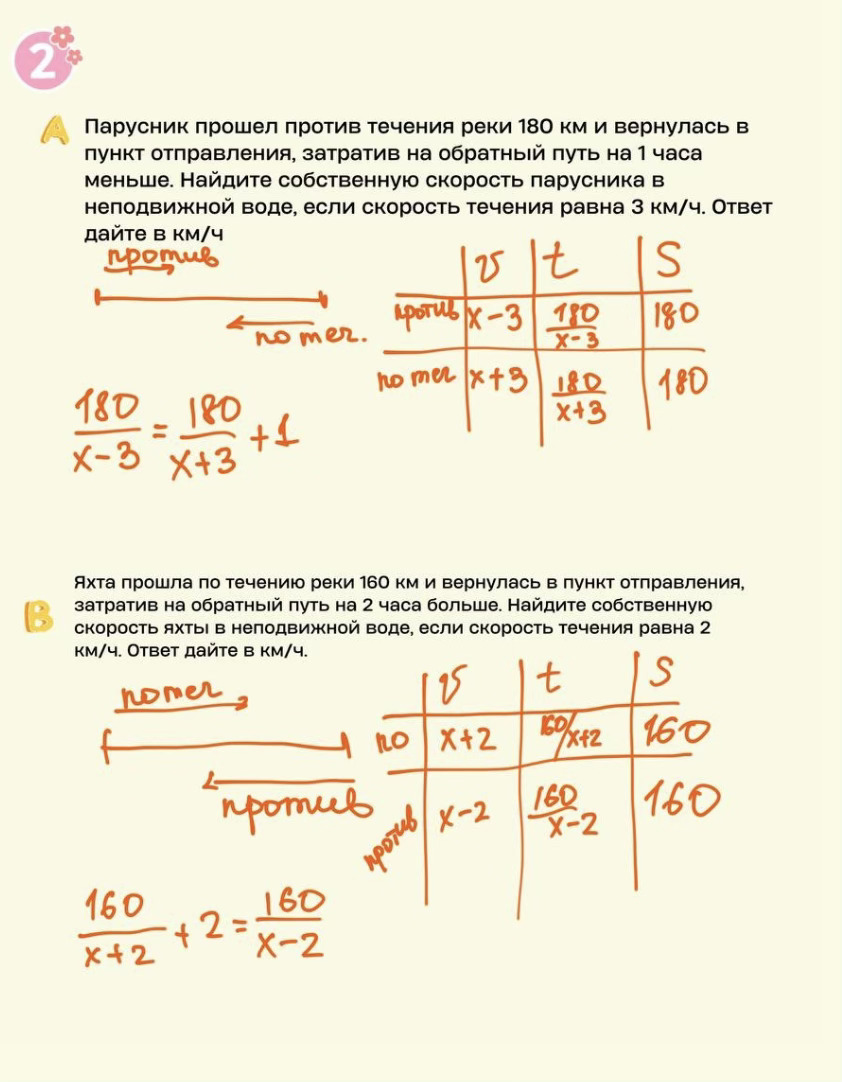 2
A
Парусник прошел против течения реки 180 км и вернулась в
пункт отправления, затратив на обратный путь на 1 часа
меньше. Найдите собственную скорость парусника в
неподвижной воде, если скорость течения равна 3 км/ч. Ответ
дайте в км/ч
против
по теч.
v t S
против x-3 180/x-3 180
по теч x+3 180/x+3 180
180/x-3 = 180/x+3 +1
B
Яхта прошла по течению реки 160 км и вернулась в пункт отправления,
затратив на обратный путь на 2 часа больше. Найдите собственную
скорость яхты в неподвижной воде, если скорость течения равна 2
км/ч. Ответ дайте в км/ч.
по теч
против
v t S
по x+2 160/x+2 160
против x-2 160/x-2 160
160/x+2 +2= 160/x-2